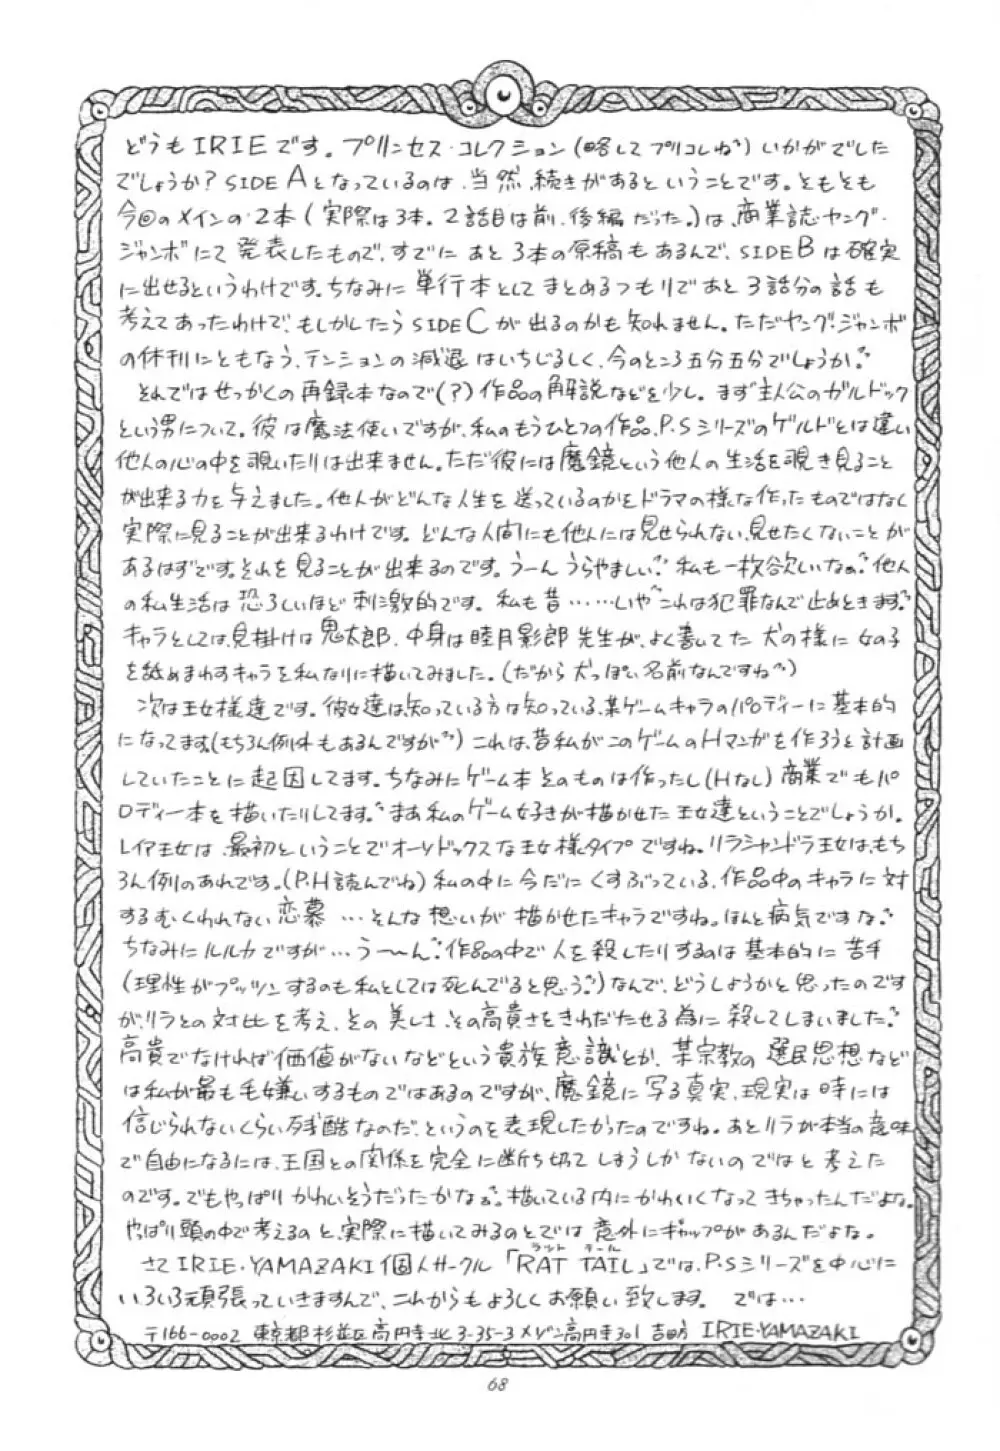 どうもIRIEです。プリンセス・コレクション(略してプリコレね)いかがでした
でしょうか?SIDE Aとなっているのは、当然、続きがあるということです。そもそも
今回のメインの2本(実際は3本。2話目は前、後編だった。)は、商業誌ヤング・
ジャンボにて発表したもので、すでにあと3本の原稿もあるんで、SIDE Bは確実
に出せるというわけです。ちなみに単行本としてまとめるつもりであと3話分の話も
考えてあったわけで、もしかしたらSIDE Cが出るのかも知れません。ただヤング・ジャンボ
の休刊にともなう、テンションの減退はいちじるしく、今のところ五分五分でしょうか。
それではせっかくの再録本なので(?)作品の解説などを少し。まず主人公のガルドック
という男について。彼は魔法使いですが、私のもうひとつの作品、P.Sシリーズのゲルドとは違い
他人の心の中を覗いたりは出来ません。ただ彼には魔鏡という他人の生活を覗き見ること
が出来る力を与えました。他人がどんな人生を送っているのかをドラマの様な作ったものではなく
実際に見ることが出来るわけです。どんな人間にも他人には見せられない、見せたくないことが
あるはずです。それを見ることが出来るのです。うーんうらやましい。私も一枚欲しいなぁ。他人
の私生活は恐ろしいほど刺激的です。私も昔……いやこれは犯罪なんで止めときます。
キャラとしては、見掛けは鬼太郎、中身は睦月影郎先生が、よく書いてた犬の様に女の子
を舐めまわすキャラを私なりに描いてみました。(だから犬っぽい名前なんですね)
次は王女様達です。彼女達は、知っている方は知っている、某ゲームキャラのパロディーに基本的
になってます。(もちろん例外もあるんですが)これは、昔私がこのゲームのHマンガを作ろうと計画
していたことに起因してます。ちなみにゲーム本そのものは作ったし(Hなし)商業でもパ
ロディー本を描いたりしてます。まあ私のゲーム好きが描かせた王女達ということでしょうか。
レイア王女は、最初ということでオーソドックスな王女様タイプですね。リラシャンドラ王女は、もち
ろん例のあれです。(P.H読んでね)私の中に今だにくすぶっている、作品中のキャラに対
するむくわれない恋慕…そんな想いが描かせたキャラですね。ほんと病気ですな。
ちなみにルルカですが…う〜〜ん。作品の中で人を殺したりするのは基本的に苦手
(理性がプッツンするのも私としては死んでると思う。)なんで、どうしようかと思ったのです
が、リラとの対比を考え、その美しさ、その高貴さをきわだたせる為に殺してしまいました。
高貴でなければ価値がないなどという貴族意識とか、某宗教の選民思想など
は私が最も毛嫌いするものではあるのですが、魔鏡に写る真実、現実は時には
信じられないくらい残酷なのだ、というのを表現したかったのですね。あとリラが本当の意味
で自由になるには、王国との関係を完全に断ち切ってしまうしかないのではと考えた
のです。でもやっぱりかわいそうだったかなぁ。描いている内にかわいくなってきちゃったんだよな。
やっぱり頭の中で考えるのと、実際に描いてみるのとでは意外にギャップがあるんだよな。
さてIRIE・YAMAZAKI個人サークル「RAT TAIL」では、P・Sシリーズを中心に
ラット テール
いろいろ頑張っていきますんで、これからもよろしくお願い致します。では…
〒166-0002 東京都杉並区高円寺北3-35-3メゾン高円寺301 吉田方 IRIE・YAMAZAKI
68